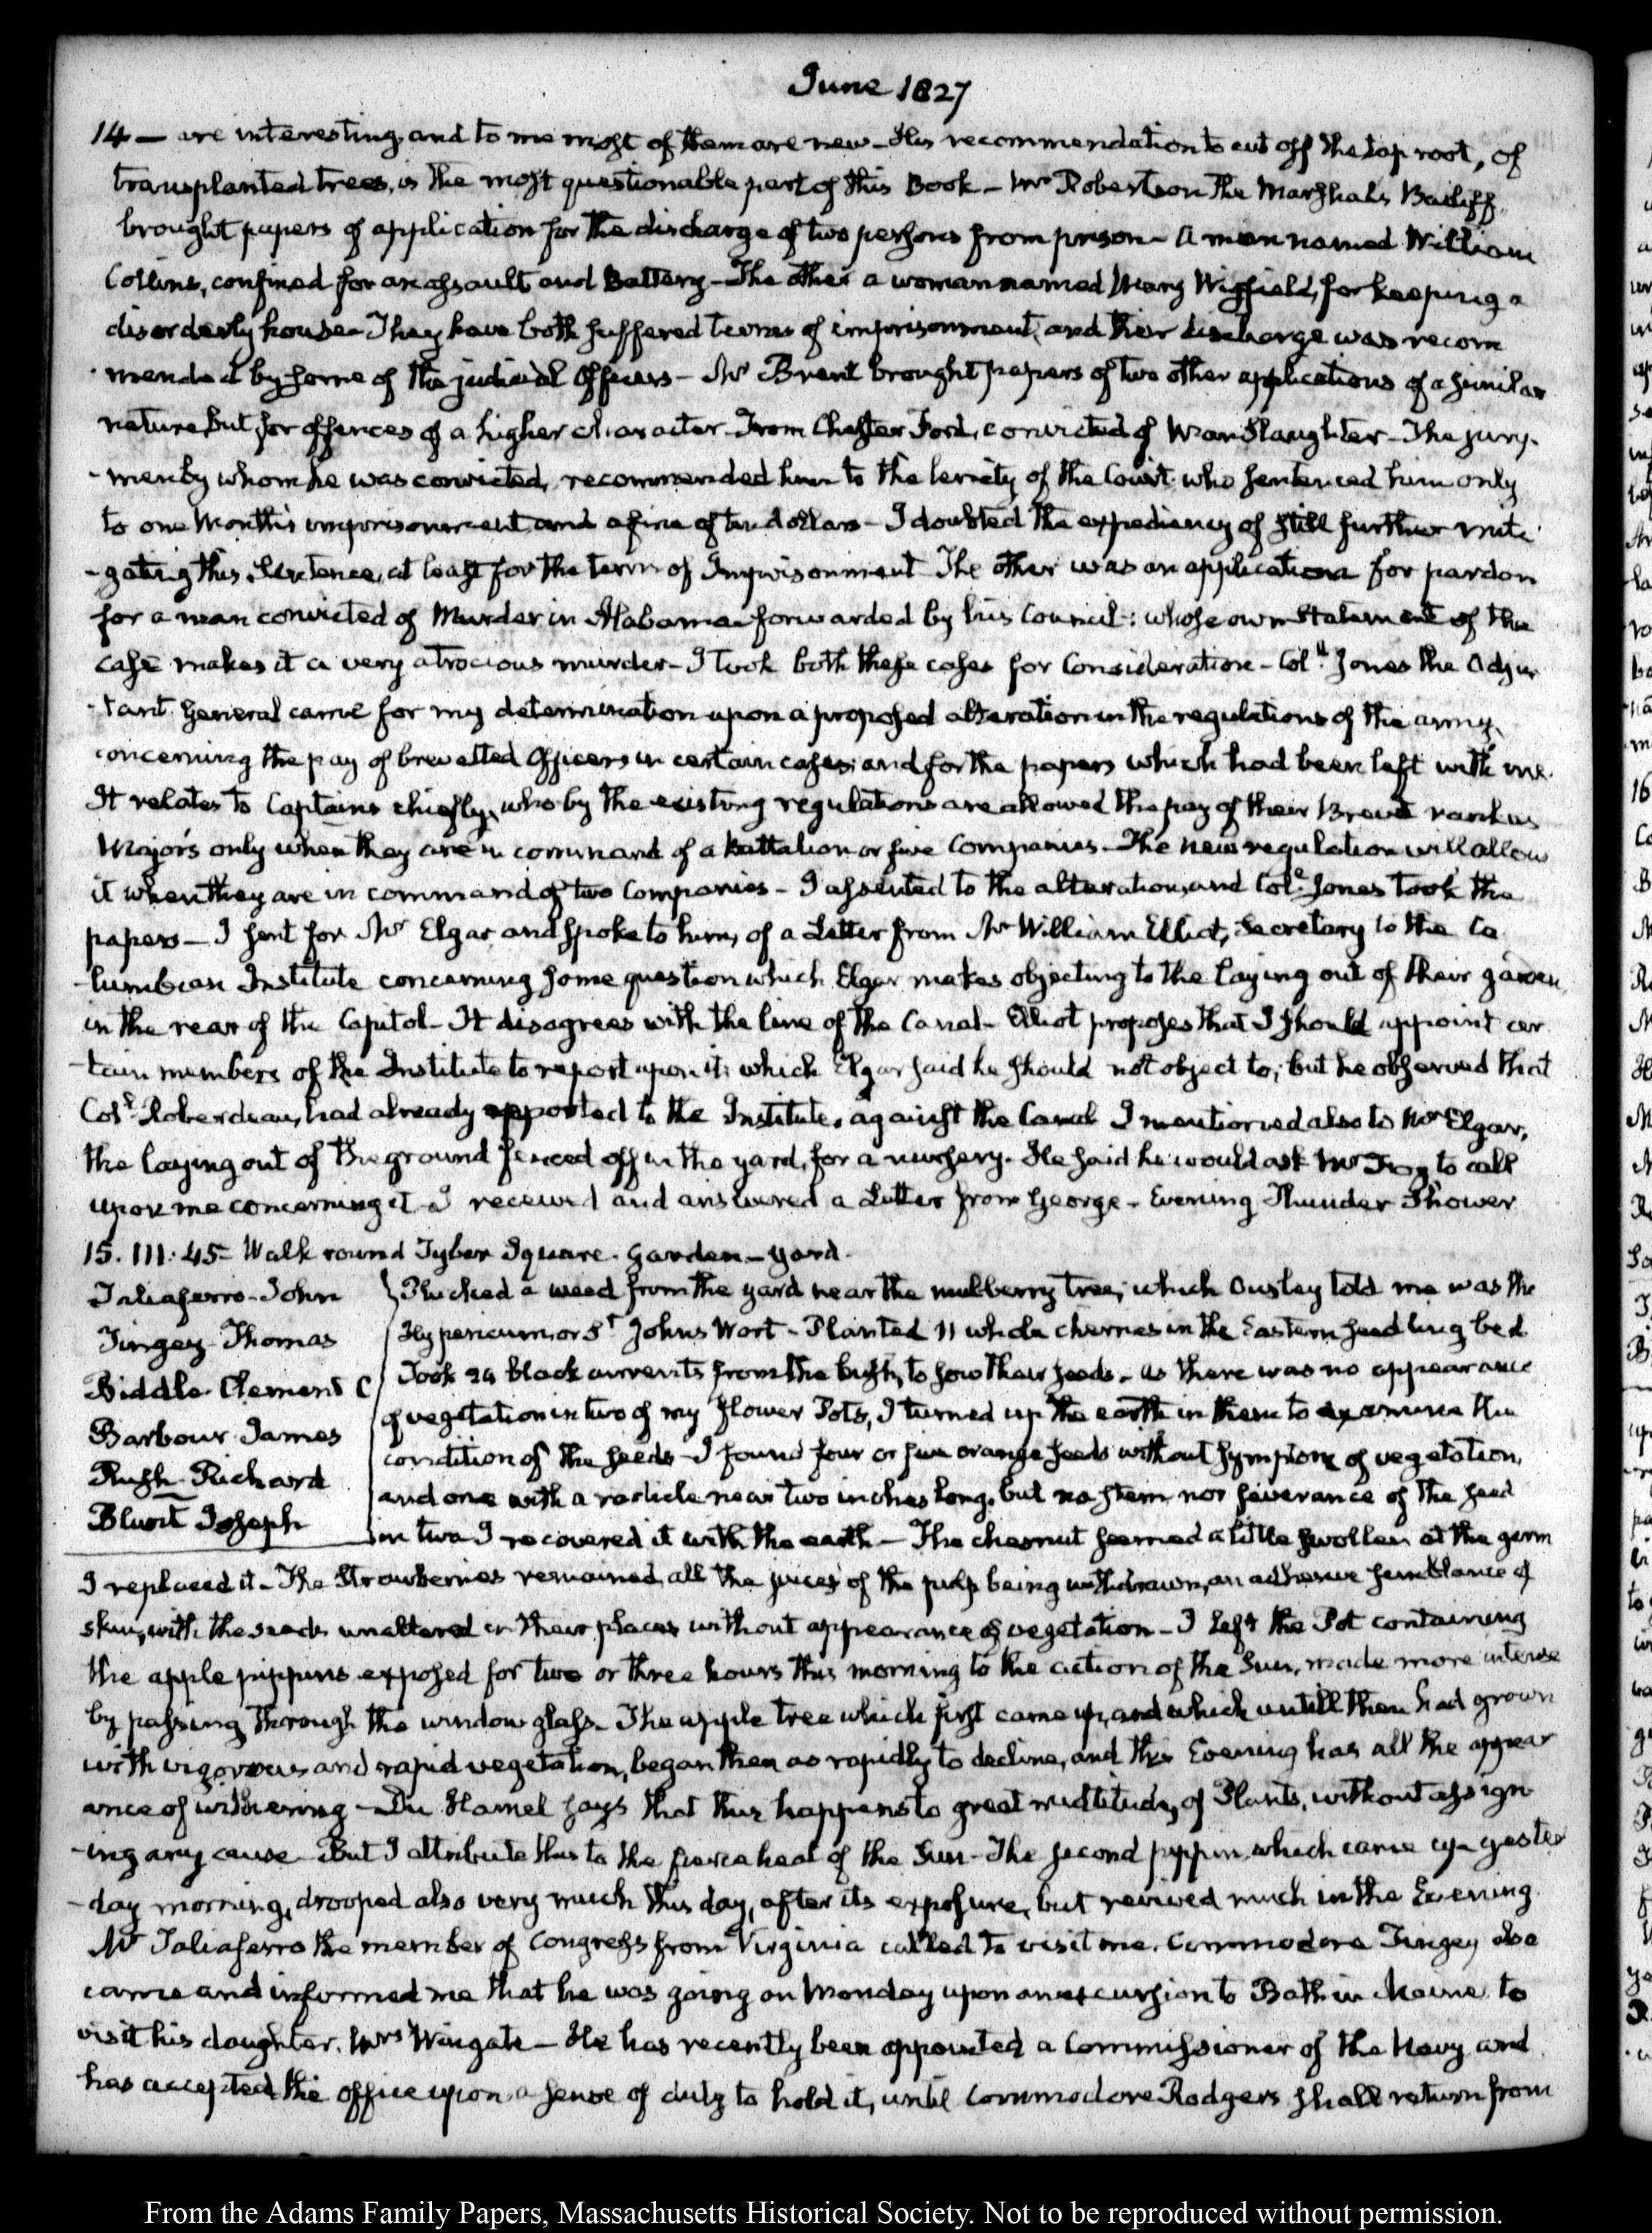 June 1827
14 — are interesting, and to me most of them are new — His recommendation to cut off the tap root, of
transplanted trees, is the most questionable part of this Book — Mr Robertson the Marshal's Bailiff,
brought papers of application for the discharge of two persons from prison — A man named William
Collins, confined for an assault and Battery — The other a woman named Mary Wigfield, for keeping a
disorderly house — They have both suffered terms of imprisonment, and their discharge was recom
-mended by some of the judicial Officers — Mr Brent brought papers of two other applications of a similar
nature but for offences of a higher character — From Chester Ford, convicted of Manslaughter — The jury-
-men by whom he was convicted, recommended him to the lenity of the Court who sentenced him only
to one Month's imprisonment and a fine of ten dollars — I doubted the expediency of still further miti
-gating this Sentence, at least for the term of Imprisonment The other was an application for pardon
for a man convicted of Murder in Alabama forwarded by his Council: whose own statement of the
case makes it a very atrocious murder — I took both these cases for Consideration — Coll. Jones the Adju
-tant General came for my determination upon a proposed alteration in the regulations of the army,
concerning the pay of brevetted Officers in certain cases; and for the papers which had been left with me.
It relates to Captains chiefly, who by the existing regulations are allowed the pay of their Brevet rank as
Majors only when they are in command of a battalion or five Companies — The new regulation will allow
it when they are in command of two Companies — I assented to the alteration, and Coll. Jones took the
papers — I sent for Mr Elgar and spoke to him, of a Letter from Mr William Elliot, Secretary to the Co
-lumbian Institute concerning some question which Elgar makes objecting to the laying out of their garden,
in the rear of the Capitol — It disagrees with the line of the Canal — Elliot proposes that I should appoint cer
-tain members of the Institute to report upon it; which Elgar said he should not object to; but he observed that
Coll. Roberdeau, had already reported to the Institute, against the Canal I mentioned also to Mr Elgar,
the laying out of the ground fenced off in the yard, for a nursery. He said he would ask Mr Foy to call
upon me concerning it — I received and answered a Letter from George — Evening Thunder Shower
15. III: 45 — Walk round Tyber Square. Garden — yard.
Taliaferro — John
Tingey Thomas
Biddle. Clement C
Barbour James
Rush Richard
Blunt Joseph
Plucked a weed from the yard near the mulberry tree; which Ousley told me was the
Hypericum, or St. Johns Wort — Planted 11 whole cherries in the Eastern seedling bed
Took 24 black currents from the bush, to sow their seeds — As there was no appearance
of vegetation in two of my Flower Pots, I turned up the earth in them to examine the
condition of the seeds — I found four or five orange seeds without symptom of vegetation,
and one with a radicle near two inches long, but no stem, nor severance of the seed
in two I recovered it with the earth — The chesnut seemed a little swollen at the germ
I replaced it — The Strawberries remained, all the juices of the pulp being withdrawn, an adhesive semblance of
skin, with the seeds unaltered in their places without appearance of vegetation — I left the Pot containing
the apple pippins exposed for two or three hours this morning to the action of the Sun, made more intense
by passing through the window glass — The apple tree which first came up, and which untill then had grown
with vigorous and rapid vegetation, began then as rapidly to decline, and this Evening has all the appear
ance of withering — Du Hamel says that this happens to great multitudes of Plants, without assign
-ing any cause — But I attribute this to the fierce heat of the Sun — The second pippin which came up yester
-day morning, drooped also very much this day, after its exposure, but revived much in the Evening.
Mr Taliaferro the member of Congress from Virginia called to visit me. Commodore Tingey also
came and informed me that he was going on Monday upon an excursion to Bath in Maine to
visit his daughter, Mrs Wingate — He has recently been appointed a Commissioner of the Navy and
has accepted the office upon a sense of duty to hold it, until Commodore Rodgers shall return from
From the Adams Family Papers, Massachusetts Historical Society. Not to be reproduced without permission.